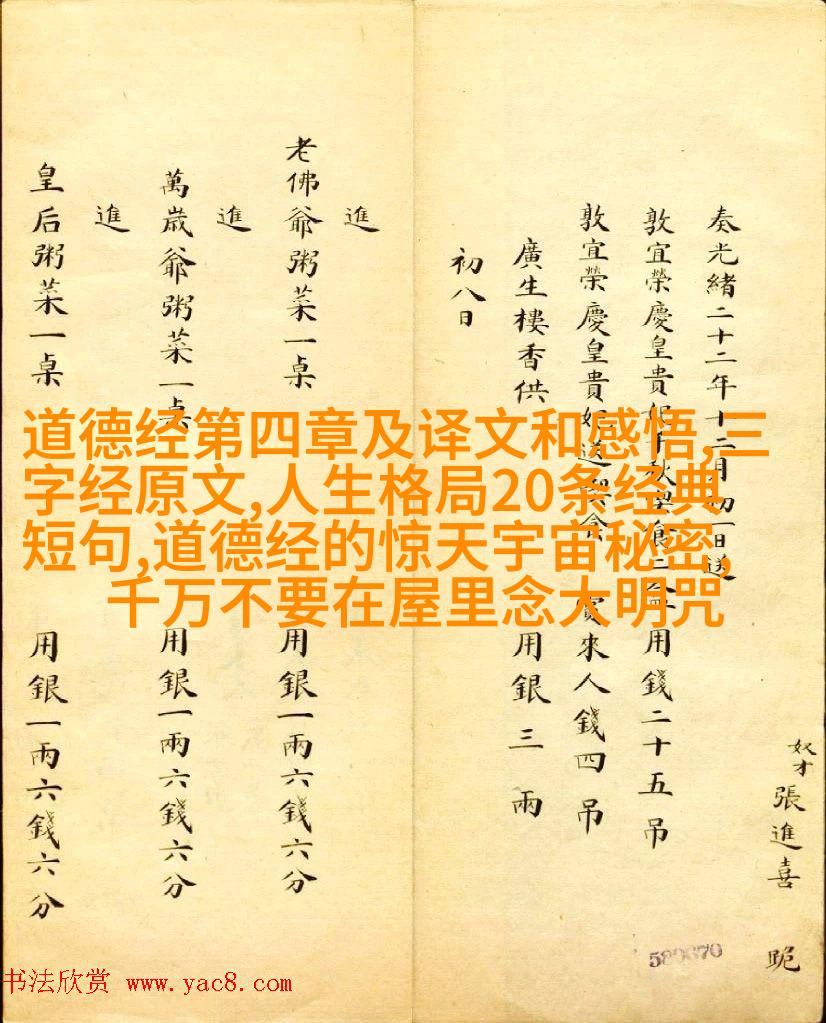 奴才張進喜 跪
奏光緒二十二年十二月初一日送
敦宜榮慶皇貴妃千秋 用錢二十五吊
敦宜榮慶皇貴妃送 賞來人錢四吊
廣生樓香供 用銀三兩
初八日
進
老佛爺粥菜一桌 用銀一兩六錢六分
進
萬歲爺粥菜一桌 用銀一兩六錢六分
進
皇后粥菜一桌 用銀一兩六錢六分
道德经第四章及译文和感悟,三
字经原文,人生格局20条经典
短句,道德经的惊天宇宙秘密,
千万不要在屋里念大明咒
书法欣赏 www.yac8.com